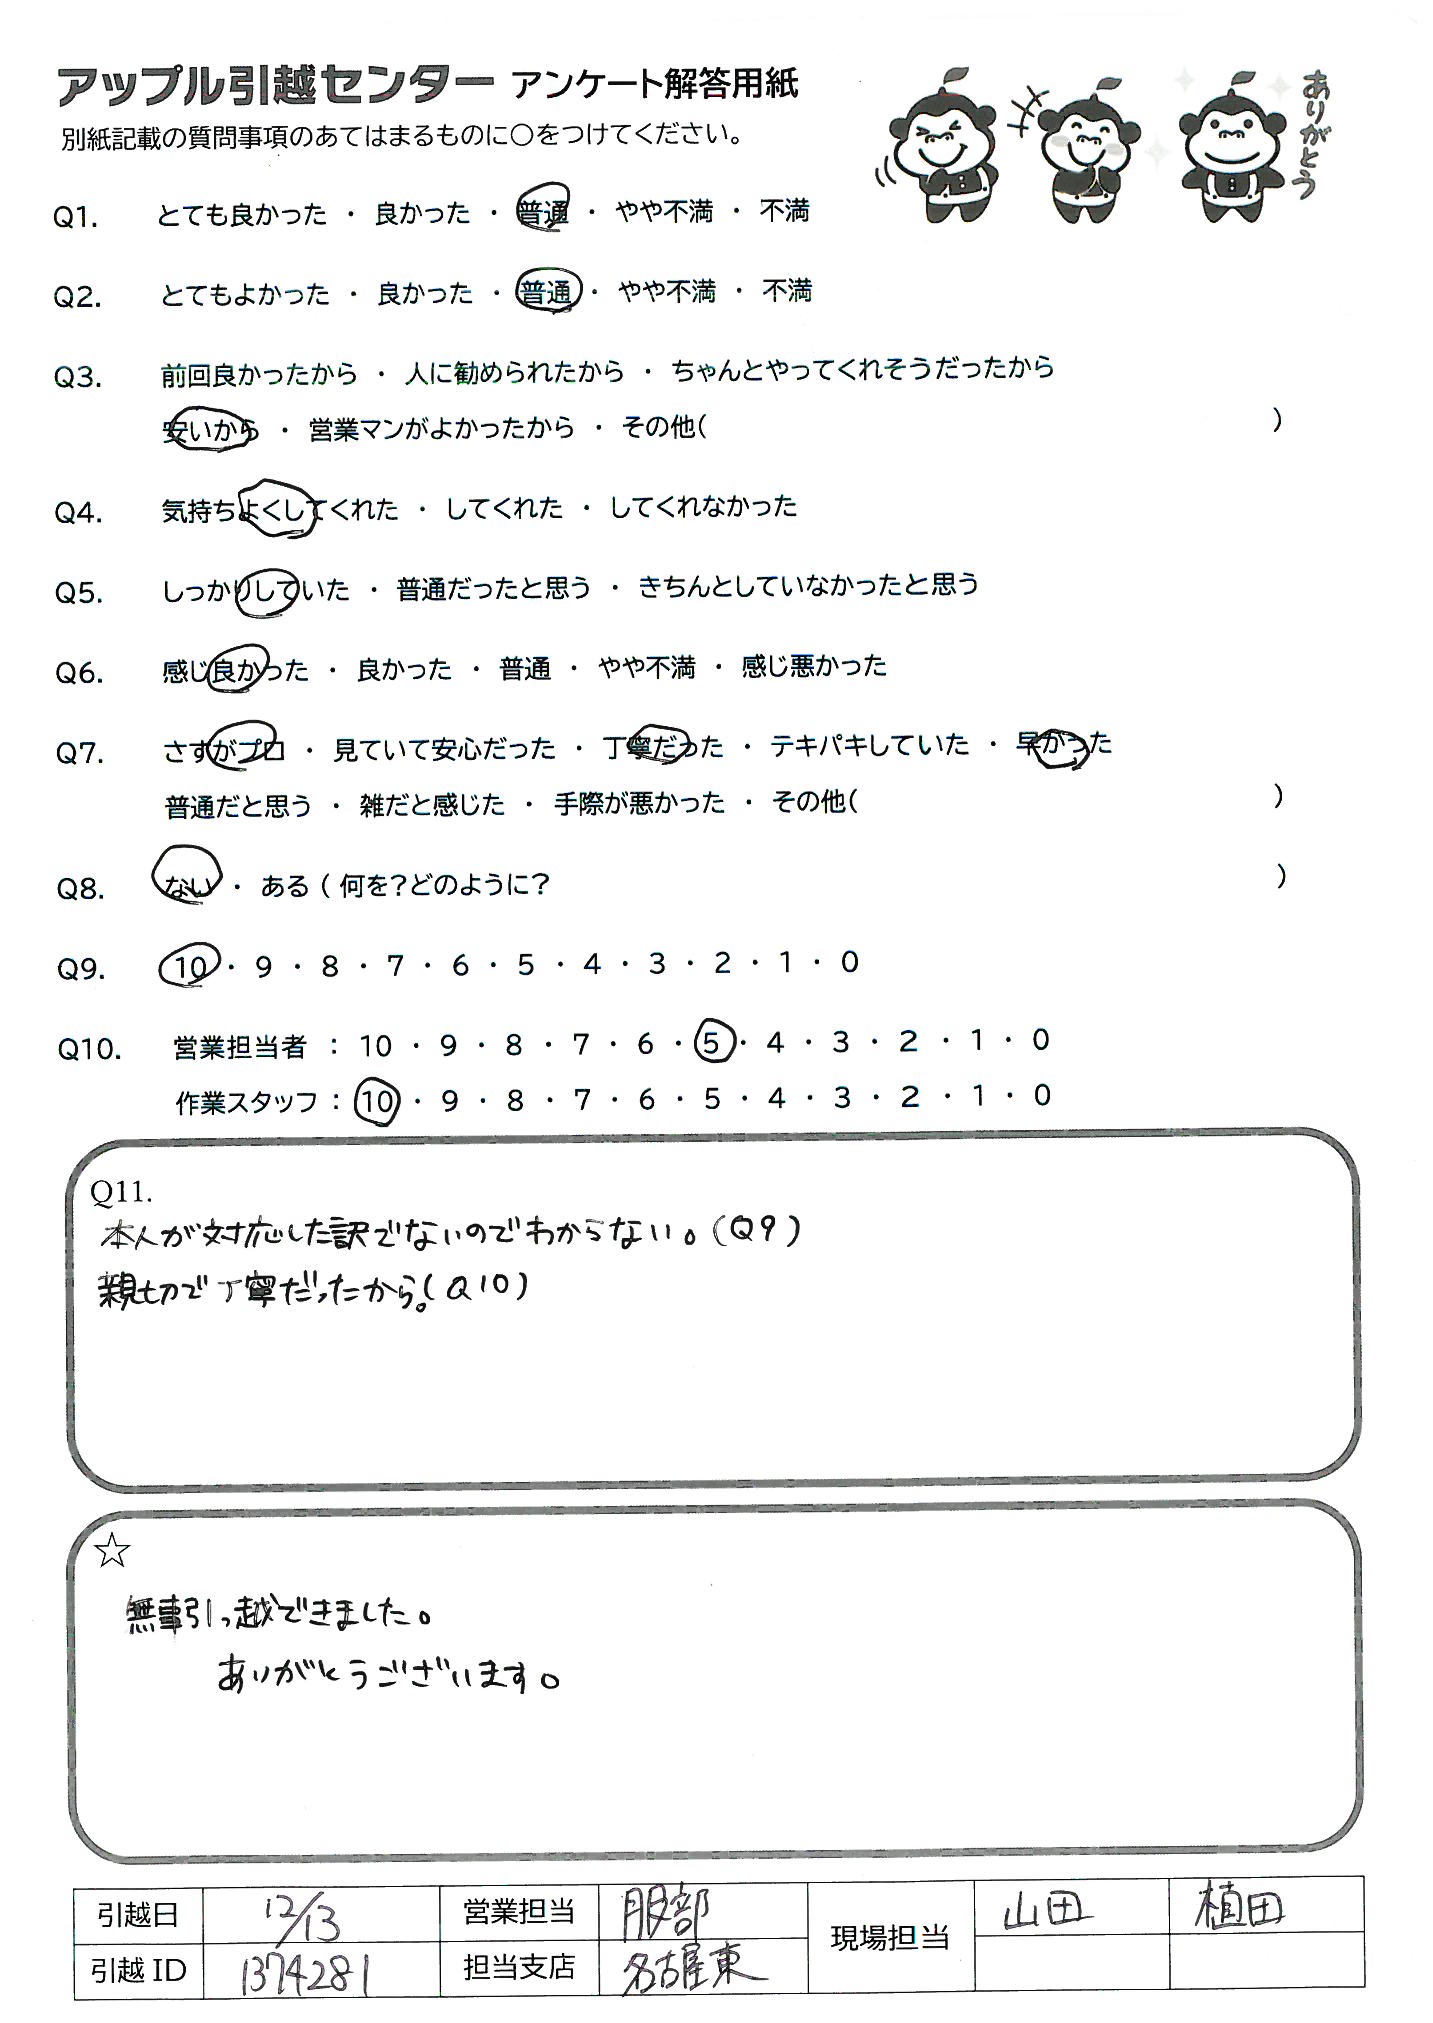 アップル引越センター アンケート解答用紙
ありがとう
別紙記載の質問事項のあてはまるものに○をつけてください。
Q1. とても良かった ・ 良かった ・ 普通 ・ やや不満 ・ 不満
Q2. とてもよかった ・ 良かった ・ 普通 ・ やや不満 ・ 不満
Q3. 前回良かったから ・ 人に勧められたから ・ ちゃんとやってくれそうだったから
安いから ・ 営業マンがよかったから ・ その他( )
Q4. 気持ちよくしてくれた ・ してくれた ・ してくれなかった
Q5. しっかりしていた ・ 普通だったと思う ・ きちんとしていなかったと思う
Q6. 感じ良かった ・ 良かった ・ 普通 ・ やや不満 ・ 感じ悪かった
Q7. さすがプロ ・ 見ていて安心だった ・ 丁寧だった ・ テキパキしていた ・ 早かった
普通だと思う ・ 雑だと感じた ・ 手際が悪かった ・ その他( )
Q8. ない ・ ある ( 何を？どのように？ )
Q9. 10 ・ 9 ・ 8 ・ 7 ・ 6 ・ 5 ・ 4 ・ 3 ・ 2 ・ 1 ・ 0
Q10. 営業担当者 ： 10 ・ 9 ・ 8 ・ 7 ・ 6 ・ 5 ・ 4 ・ 3 ・ 2 ・ 1 ・ 0
作業スタッフ ： 10 ・ 9 ・ 8 ・ 7 ・ 6 ・ 5 ・ 4 ・ 3 ・ 2 ・ 1 ・ 0
Q11.
本人が対応した訳でないのでわからない。(Q9)
親切で丁寧だったから。(Q10)
☆
無事引っ越できました。
ありがとうございます。
引越日 12/13 営業担当 服部 現場担当 山田 植田
引越ID 1374281 担当支店 名古屋東